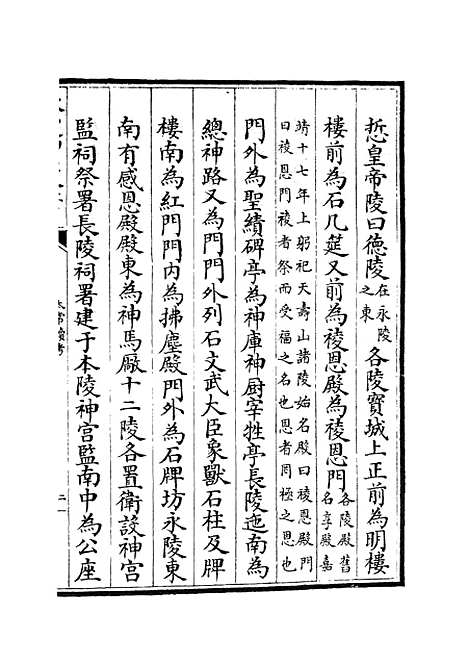 悊皇帝陵曰德陵在永陵之東各陵寶城上正前為明樓
樓前為石几筵又前為祾恩殿為祾恩門各陵殿舊名享殿嘉
靖十七年上躬祀天壽山諸陵始名殿曰祾恩殿門
曰祾恩門祾者祭而受福之名也恩者罔極之恩也
門外為聖績碑亭為神庫神厨宰牲亭長陵迤南為
總神路又為門門外列石文武大臣象獸石柱及牌
樓南為紅門門内為拂塵殿門外為石牌坊永陵東
南有感恩殿殿東為神馬厰十二陵各置衛設神宮
監祠祭署長陵祠署建于本陵神宮監南中為公座
太常續考